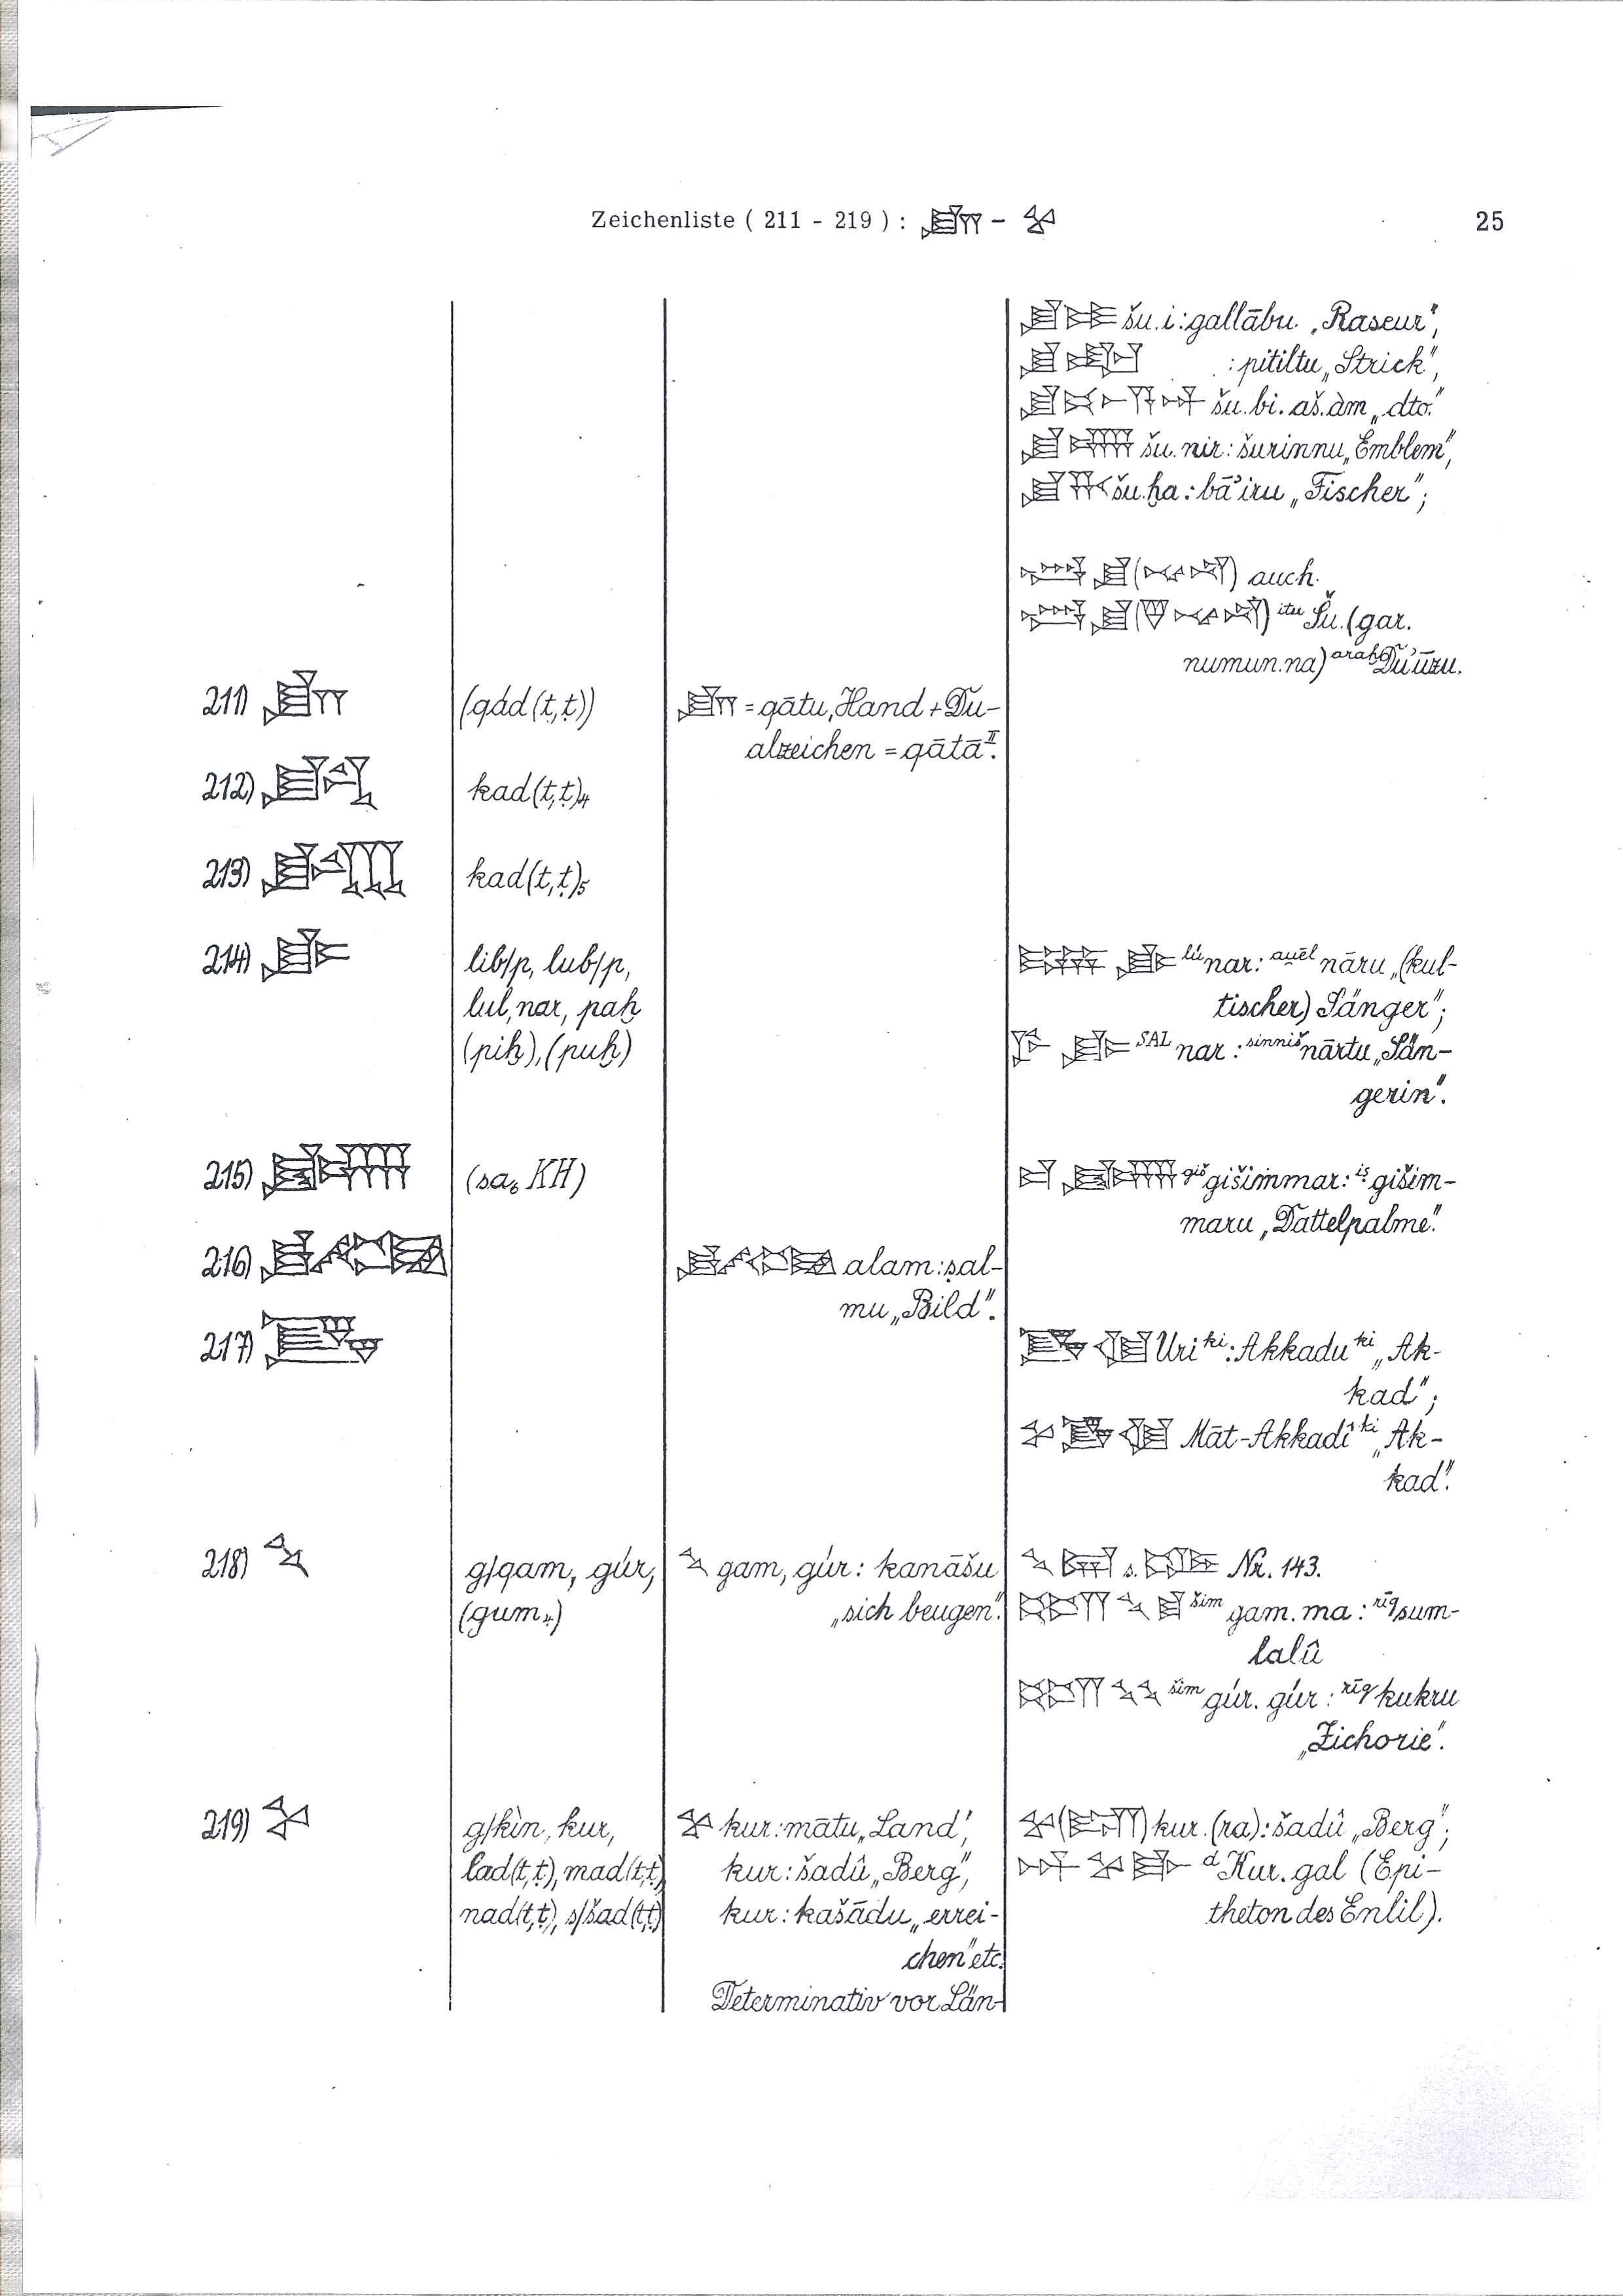 Zeichenliste ( 211 - 219 ) : 𒋗𒈫 - 𒆳
25
𒋗𒄿 šu.i : gallābu „Raseur",
: pitiltu „Strick",
𒋗𒁉𒀸𒀀𒀭 šu.bi.aš.àm „dto."
𒋗𒉪 šu.nir : šurinnu „Emblem",
𒋗𒄩 šu.ḫa : bā’iru „Fischer";
𒌗𒋗(𒆰𒈾) auch
𒌗𒋗(𒃻𒆰𒈾) itu Šu.(gar.
numun.na) araḫ Du’ūzu.
211) 𒋗𒈫
(qád(t,ṭ))
𒋗𒈫 = qātu „Hand + Du-
alzeichen = qātā II".
212)
kad(t,ṭ)₄
213)
kad(t,ṭ)₅
214) 𒈜
lib/p, lub/p,
lul, nar, paḫ
(piḫ), (puḫ)
𒇽 𒈜 lú nar : au̯ēl nāru „(kul-
tischer) Sänger";
𒊩 𒈜 SAL nar : sinniš nārtu „Sän-
gerin".
215) 𒊷
(sa₆ KH)
𒄑 𒊷 giš gišimmar : iṣ gišim-
maru „Dattelpalme".
216) 𒀩
𒀩 alam : ṣal-
mu „Bild".
217) 𒌵
𒌵 𒆠 Uri ki : Akkadu ki „Ak-
kad";
𒆳 𒌵 𒆠 Māt-Akkadî ki „Ak-
kad".
218) 𒃵
g/qam, gúr,
(gum₄)
𒃵 gam, gúr : kanāšu
„sich beugen".
𒃵 s. Nr. 143.
𒋆 𒃵 𒈠 šim gam.ma : rīq sum-
lalû
𒋆 𒃵𒃵 šim gúr.gúr : rīq kukru
„Zichorie".
219) 𒆳
g/kìn, kur,
lad(t,ṭ), mad(t,ṭ)
nad(t,ṭ), s/šad(t,ṭ)
𒆳 kur : mātu „Land",
kur : šadû „Berg",
kur : kašādu „errei-
chen" etc.
Determinativ vor Län-
𒆳(𒊏) kur.(ra) : šadû „Berg";
𒀭 𒆳 𒃲 d Kur.gal (Epi-
theton des Enlil).